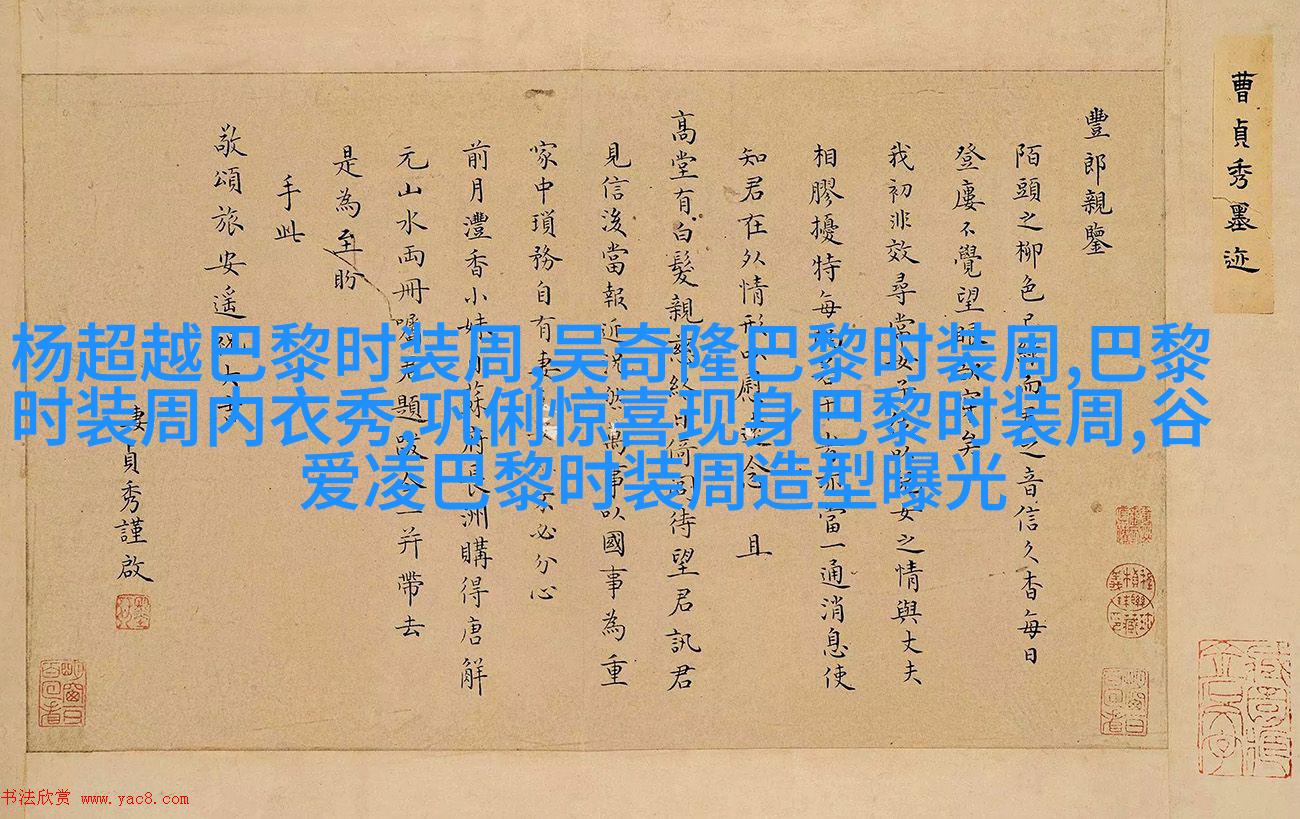 曹貞秀墨迹
豐郎親鑒
陌頭之柳色已 之音信久杳每日
登廔不覺望眼欲穿矣
我初非效尋常女子 以 女之情與丈夫
相膠擾特每 君 當一通消息使
知君在外情形以慰 念且
高堂有白髮親慈終日倚閭待望君訊君
見信後當報近況然萬事以國事為重
家中瑣務自有妻 必分心
前月灃香小妹 蘇府長洲購得唐解
元山水兩冊囑君題跋今一并帶去
是為至盼
手此
敬頌旅安遙 大
妻貞秀謹啟
杨超越巴黎时装周,吴奇隆巴黎时装周,巴黎
时装周内衣秀,巩俐惊喜现身巴黎时装周,谷
爱凌巴黎时装周造型曝光
书法欣赏 www.yac8.com